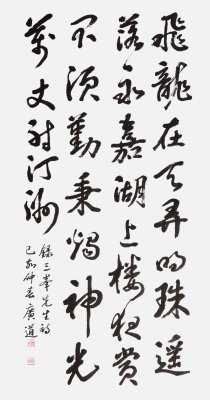 飛龍在天弄明珠遥
落永嘉湖上樓夜賞
不須勤秉燭神光
萬丈射汀洲
錄三峯先生詩
仲春廣道